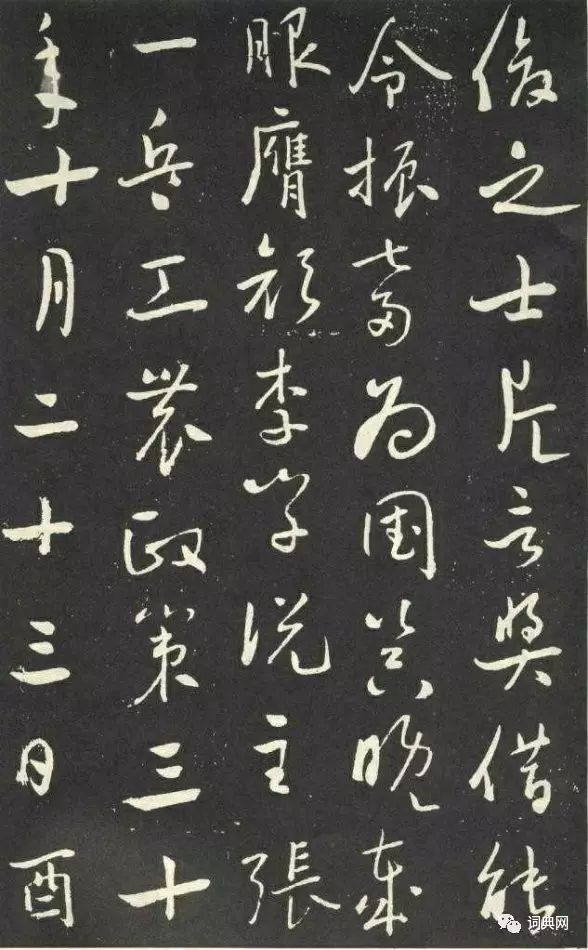 俊之士片言奬借能
令振奮為國器晚歲
服膺顏李學說主張
一兵工農政策三十
年十月二十三日酉
词典网